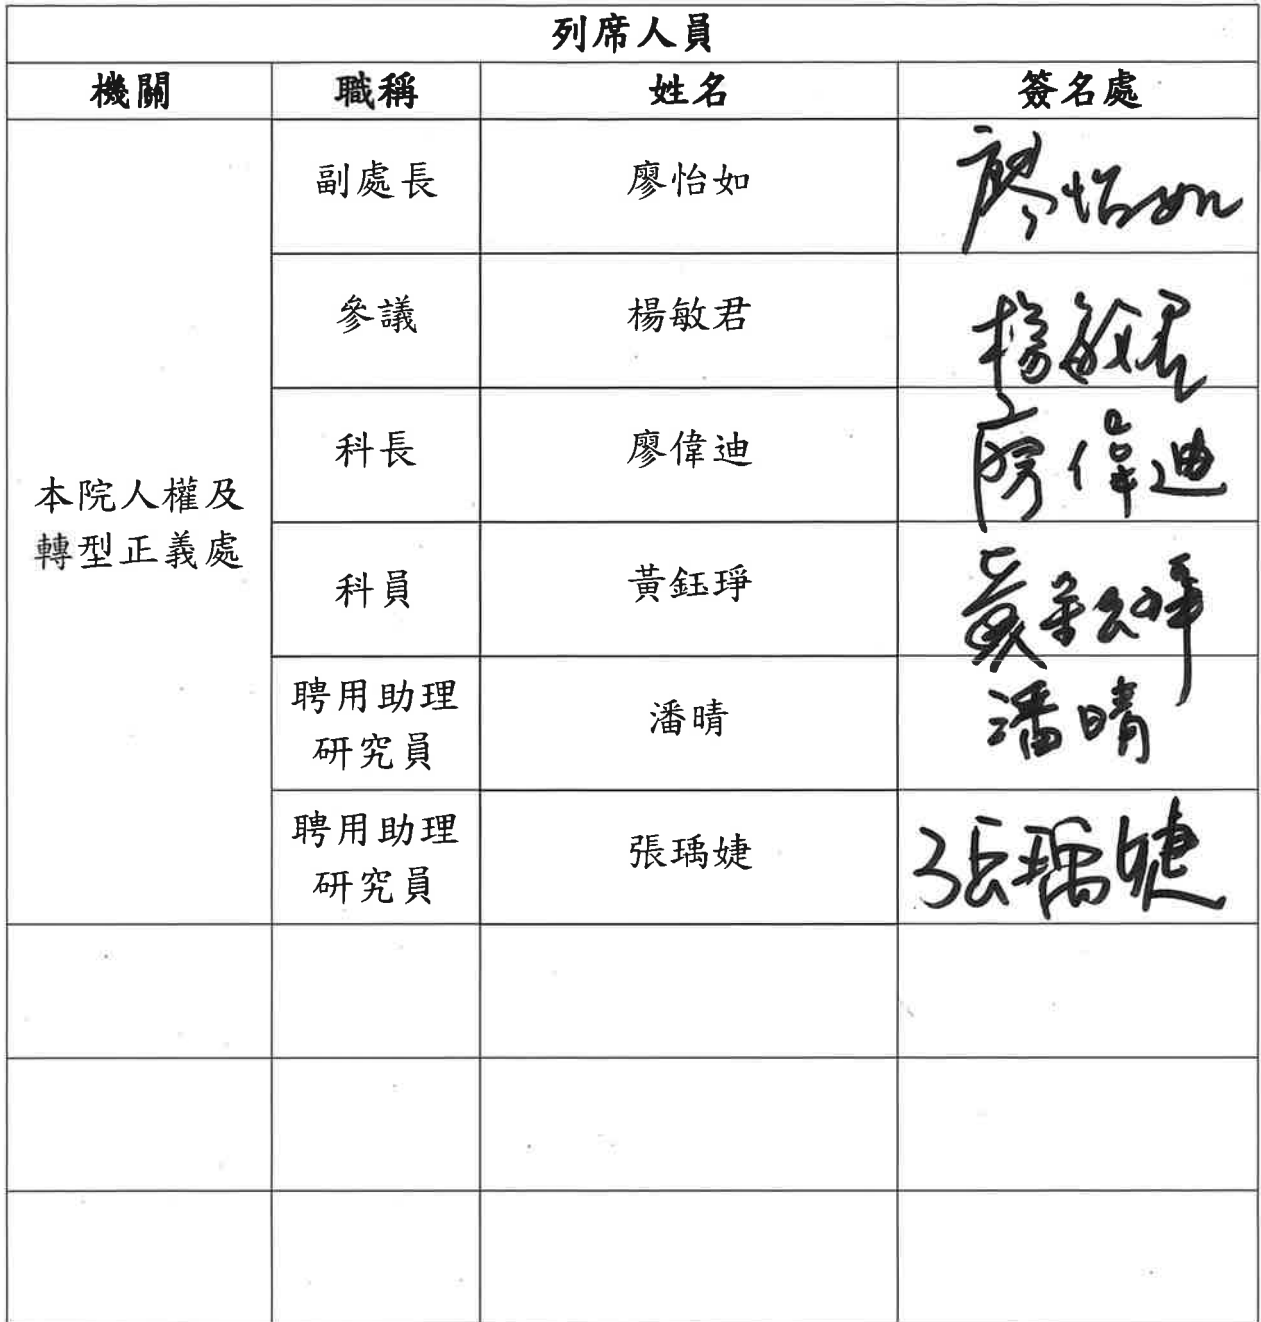 列席人員
機關 職稱 姓名 簽名處
本院人權及
轉型正義處
副處長 廖怡如 廖怡如
參議 楊敏君 楊敏君
科長 廖偉迪 廖偉迪
科員 黃鈺琤 黃鈺琤
聘用助理
研究員 潘晴 潘晴
聘用助理
研究員 張瑀婕 張瑀婕